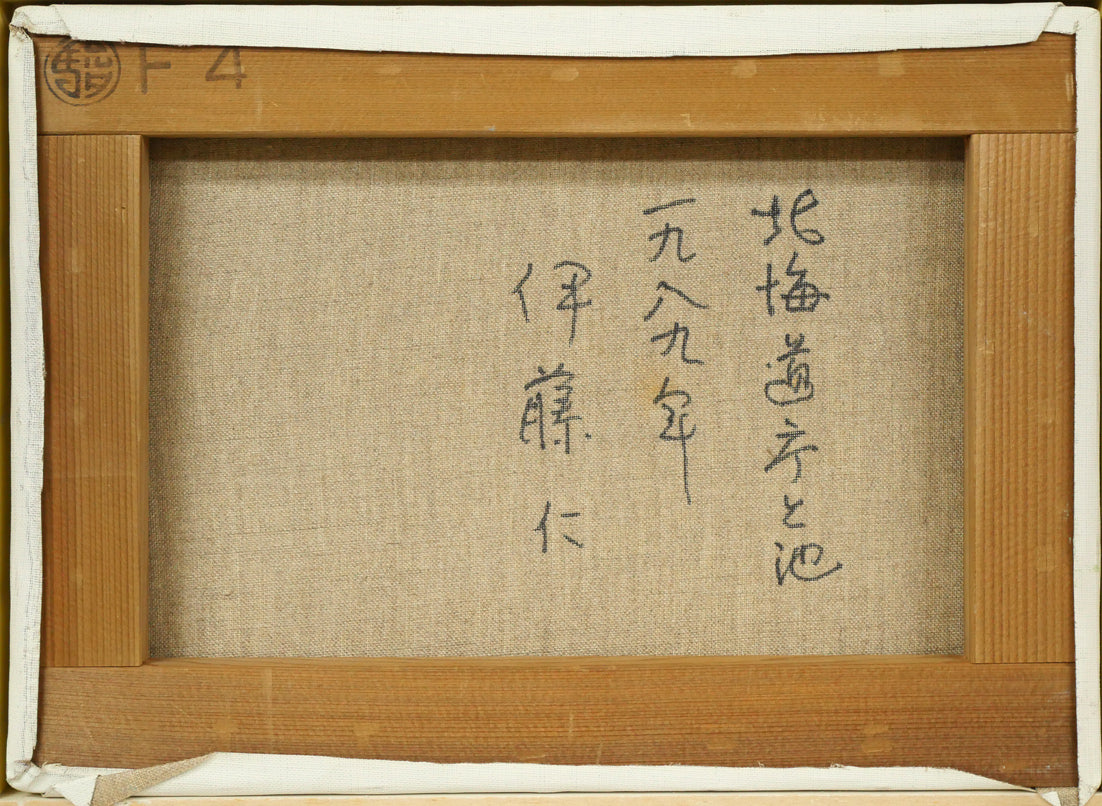 F4
北海道庁と池
一九八九年
伊藤仁